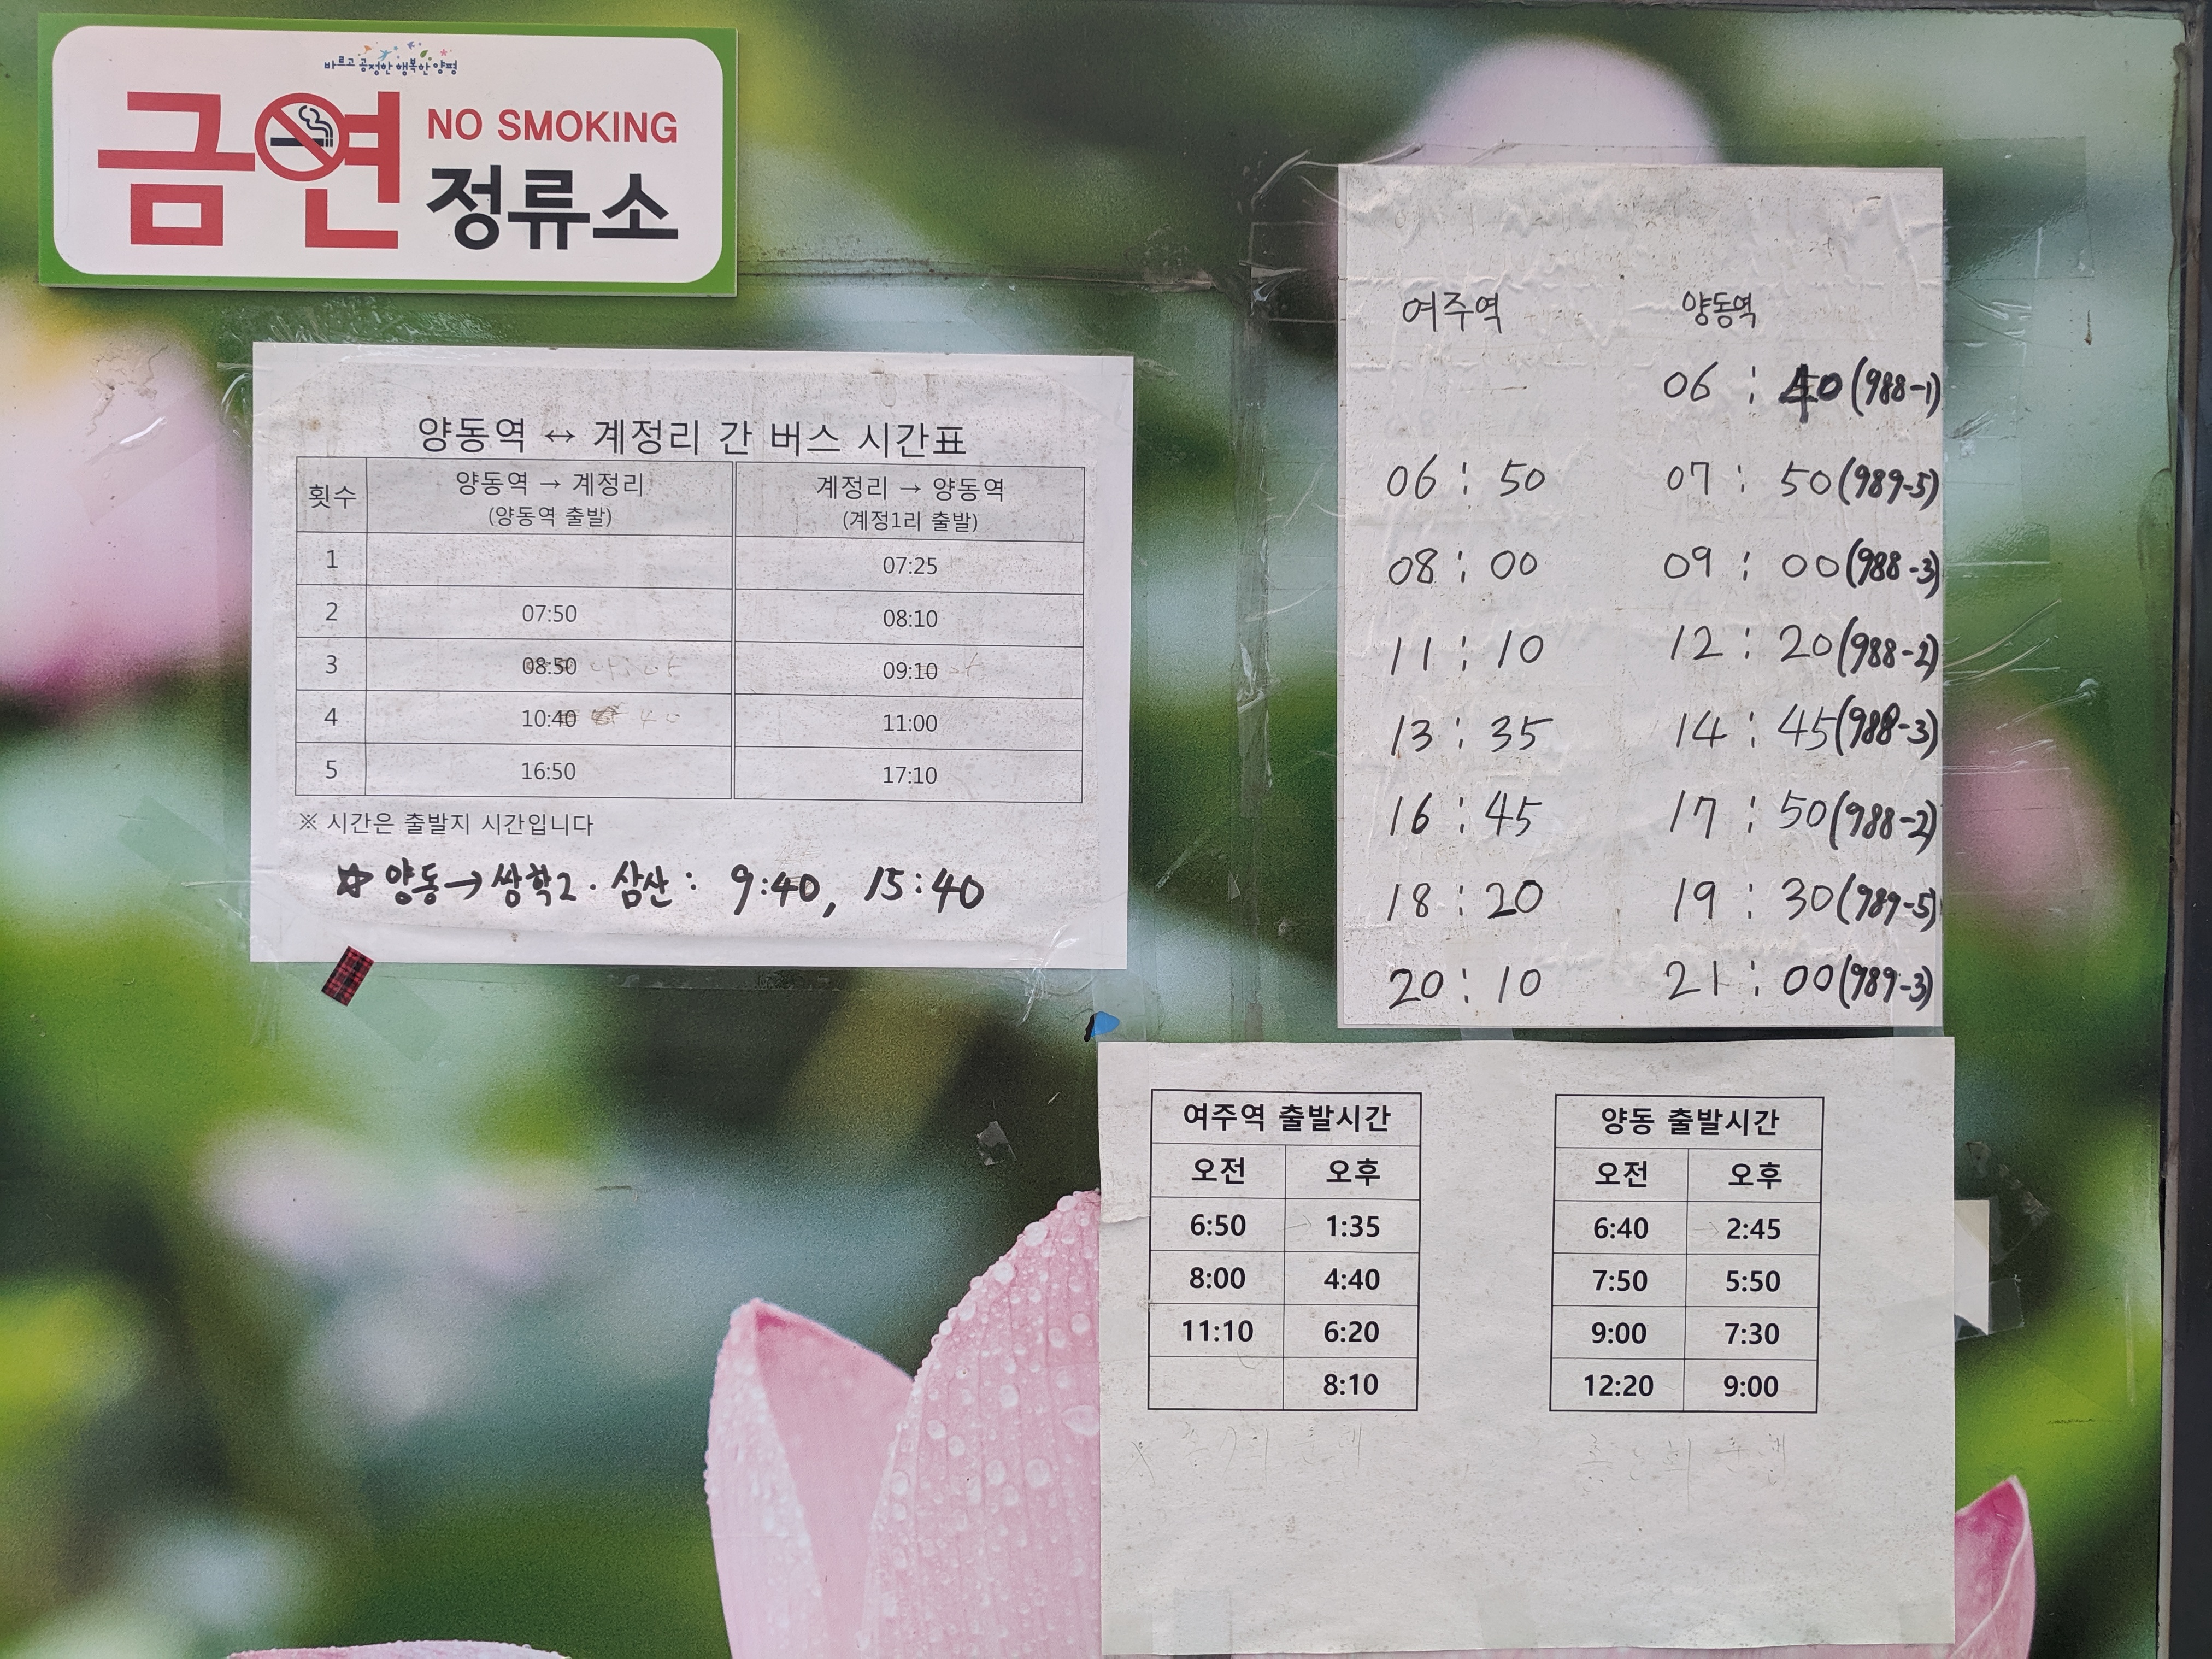 바르고 공정한 행복한 양평
금연 NO SMOKING
정류소
양동역 ↔ 계정리 간 버스 시간표
횟수 양동역 → 계정리 (양동역 출발) 계정리 → 양동역 (계정1리 출발)
1 07:25
2 07:50 08:10
3 08:50 09:10
4 10:40 40 11:00
5 16:50 17:10
※ 시간은 출발지 시간입니다
☆ 양동→쌍학2·삼산: 9:40, 15:40
여주역 양동역
06:40(988-1)
06:50 07:50(989-5)
08:00 09:00(988-3)
11:10 12:20(988-2)
13:35 14:45(988-3)
16:45 17:50(988-2)
18:20 19:30(989-5)
20:10 21:00(989-3)
여주역 출발시간
오전 오후
6:50 1:35
8:00 4:40
11:10 6:20
8:10
양동 출발시간
오전 오후
6:40 2:45
7:50 5:50
9:00 7:30
12:20 9:00